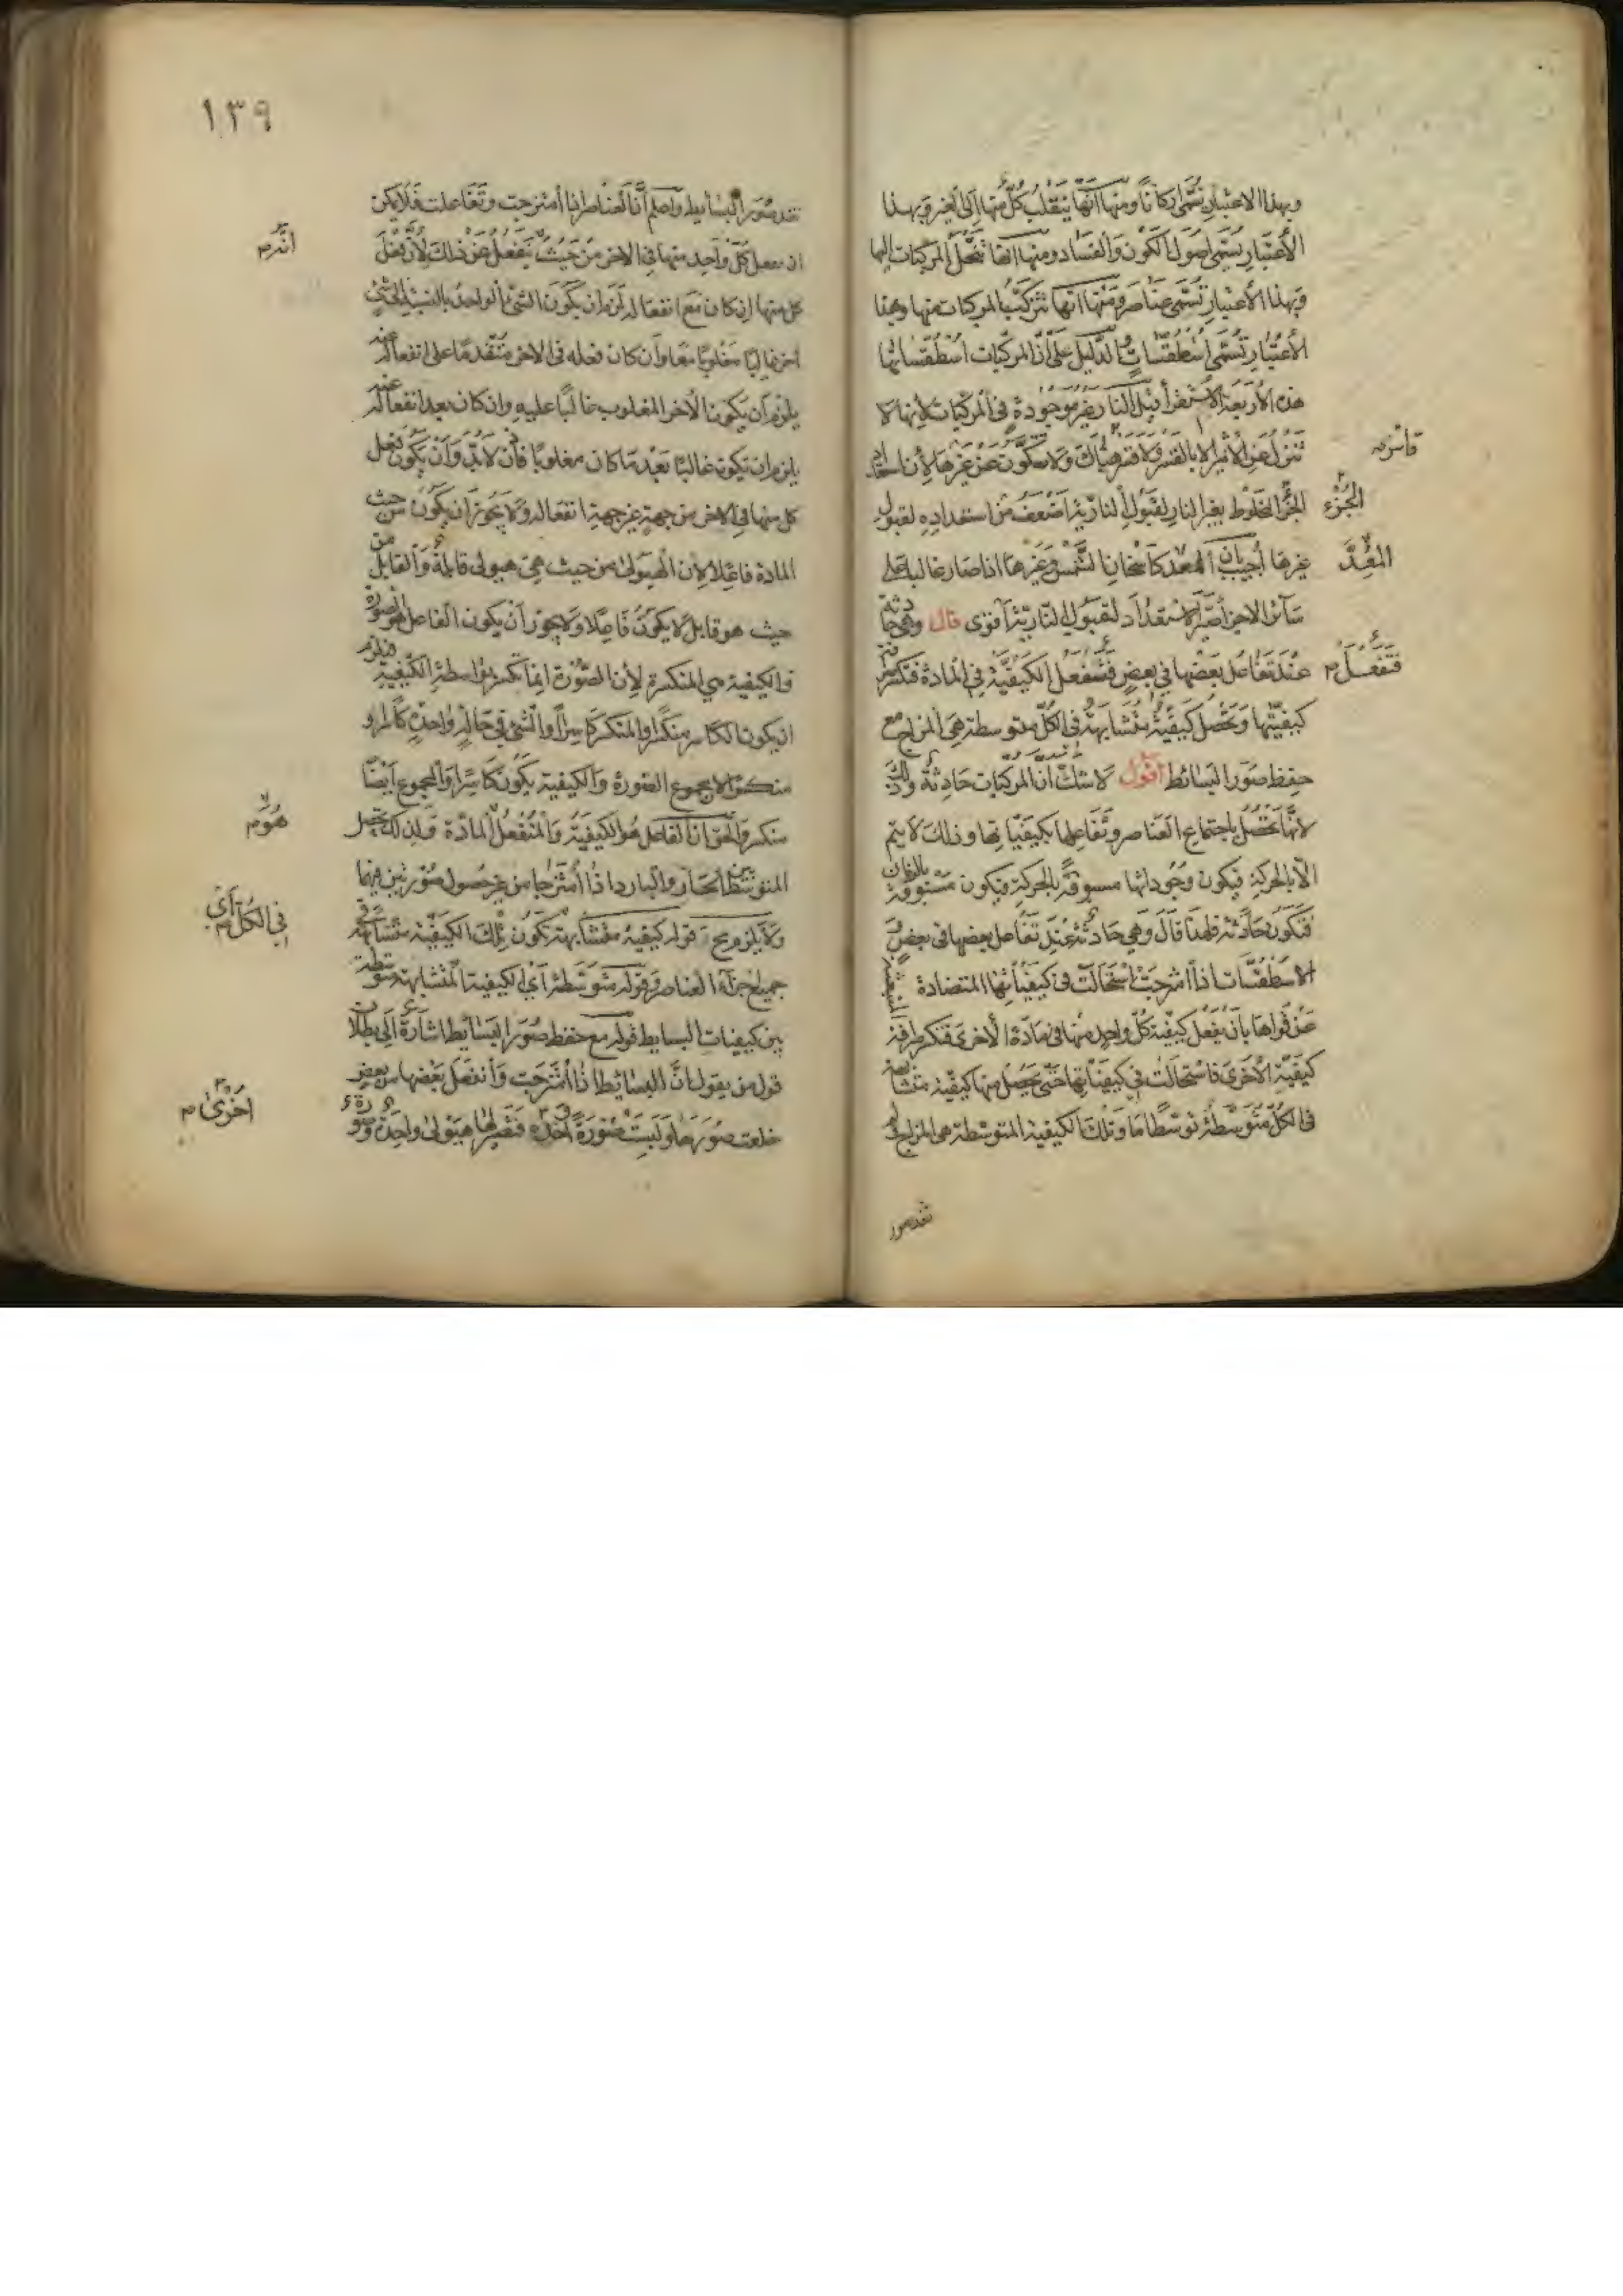 وبهذا الاعتبار تسمى اركانا ومنها انها ينقلب كل منها الى الغير وبهذا
الاعتبار يسمى اصول الكون والفساد ومنها انها تنحل المركبات اليها
وبهذا الاعتبار تسمى عناصر ومنها انها تتركب المركبات منها وبهذا
الاعتبار تسمى اسطقسات والدليل على ان المركبات اسطقساتها
هذه الاربعة الاستقرأ قيل النار غير موجودة في المركبات لانها لا
تنزل عن الاثير الا بالقسر ولا قسر هناك ولا تتكون عن غيرها لان استعداد
قاسر م
الجزء المخلوط بغير النار لقبول النارية اضعف من استعداده لقبول
الجزء
غيرها اجيب بان المعد كاسخان الشمس وغيرها اذا صار غالبا على
المعد
سائر الاجزاء صير الاستعداد لقبول النارية اقوى قال وهي حادثة
عند تفاعل بعضها في بعض فتنفعل الكيفية في المادة فتكسر
فتفعل م
كيفيتها وتحصل كيفية متشابهة في الكل متوسطة هي المزاج مع
حفظ صور البسائط اقول لا شك ان المركبات حادثة وذلك
لانها تحصل باجتماع العناصر وتفاعلها بكيفياتها وذلك لا يتم
الا بالحركة فيكون وجوداتها مسبوقة بالحركة فيكون مسبوقة بالزمان
فتكون حادثة فلهذا قال وهي حادثة عند تفاعل بعضها في بعض
الاسطقسات اذا امتزجت استحالت في كيفياتها المتضادة المنبعثة
عن قواها بان يفعل كيفية كل واحد منها في مادة الاخرى فتكسر صرافة
كيفية الاخرى فاستحالت في كيفياتها حتى يحصل منها كيفية متشابهة
في الكل متوسطة توسطا ما وتلك الكيفية المتوسطة هي المزاج
تقدصور
١٣٩
صور البسايط واعلم ان العناصر اذا امتزجت وتفاعلت فلا يمكن
ان يفعل كل واحد منها في الاخر من حيث ينفعل عن ذلك لان فعل
انه م
كل منها ان كان مع انفعاله لزم ان يكون الشئ الواحد بالنسبة الى شئ
اخر غالبا مغلوبا معا وان كان فعله في الاخر متقدما على انفعاله عنه
يلزم ان يكون الاخر المغلوب غالبا عليه وان كان بعد انفعاله عنه
يلزم ان تكون غالبا بعد ما كان مغلوبا فاذن لابد وان يكون فعل
كل منها في الاخر من جهة غير جهة انفعاله ولا يجوز ان يكون من حيث
المادة فاعلا لان الهيولى من حيث هي هيولى قابلة والقابل من
حيث هو قابل لا يكون فاعلا ولا يجوز ان يكون الفاعل هو الصورة
والكيفية هي المنكسرة لان الصورة انما تكسر بواسطة الكيفية فيلزم
ان يكون الكاسر منكسرا والمنكسر كاسرا والشئ في حالة واحدة كاسرا و
منكسرا لا مجموع الصورة والكيفية يكون كاسرا والمجموع ايضا
منكسر والحق ان الفاعل هو الكيفية والمنفعل المادة ولذلك يحصل
هو م
المتوسط بين الحار والبارد اذا امتزجا من غير حصول صورتين فيهما
ولا يلزم مح قوله كيفية متشابهة تكون تلك الكيفية متشابهة في
في الكل اي م
جميع اجزاء العناصر وقوله متوسطة اي الكيفية المتشابهة متوسطة
بين كيفيات البسايط قوله مع حفظ صور البسائط اشارة الى بطلان
قول من يقول ان البسائط اذا امتزجت وانفعل بعضها من بعض
خلعت صورها ولبست صورة اخرى فتصير لها هيولى واحدة وصورة
اخرى م